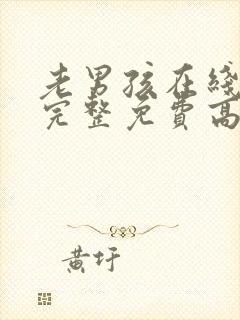 老男孩在线
完整免费高
黄圩